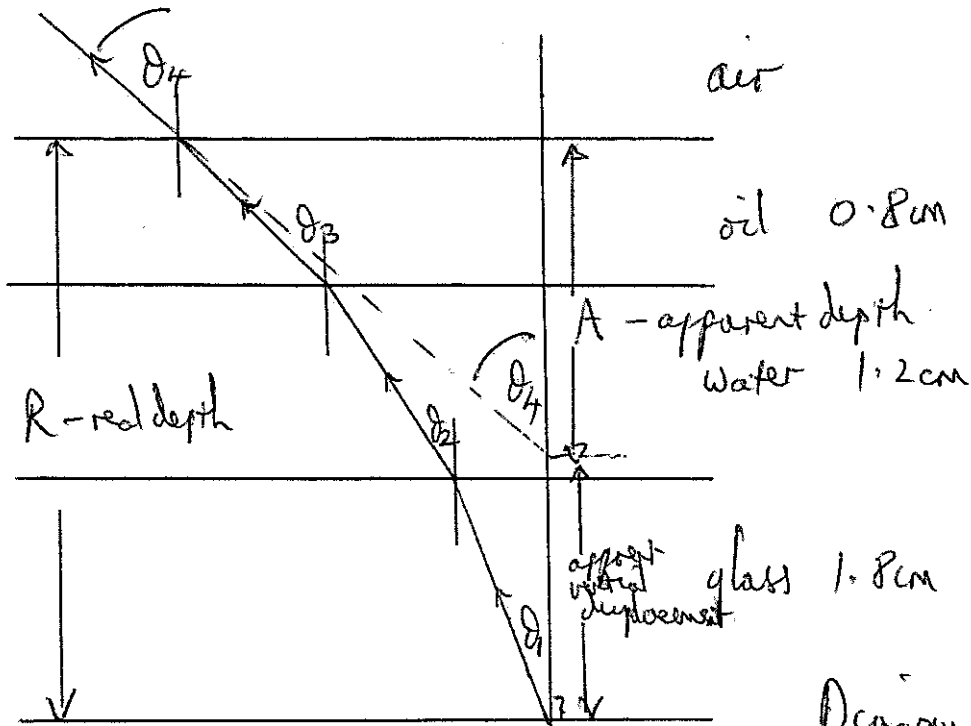 θ4
air
θ3
oil 0.8cm
A - apparent depth
water 1.2cm
θ4
R - real depth
θ2
apparent
vertical
displacement
glass 1.8cm
θ1